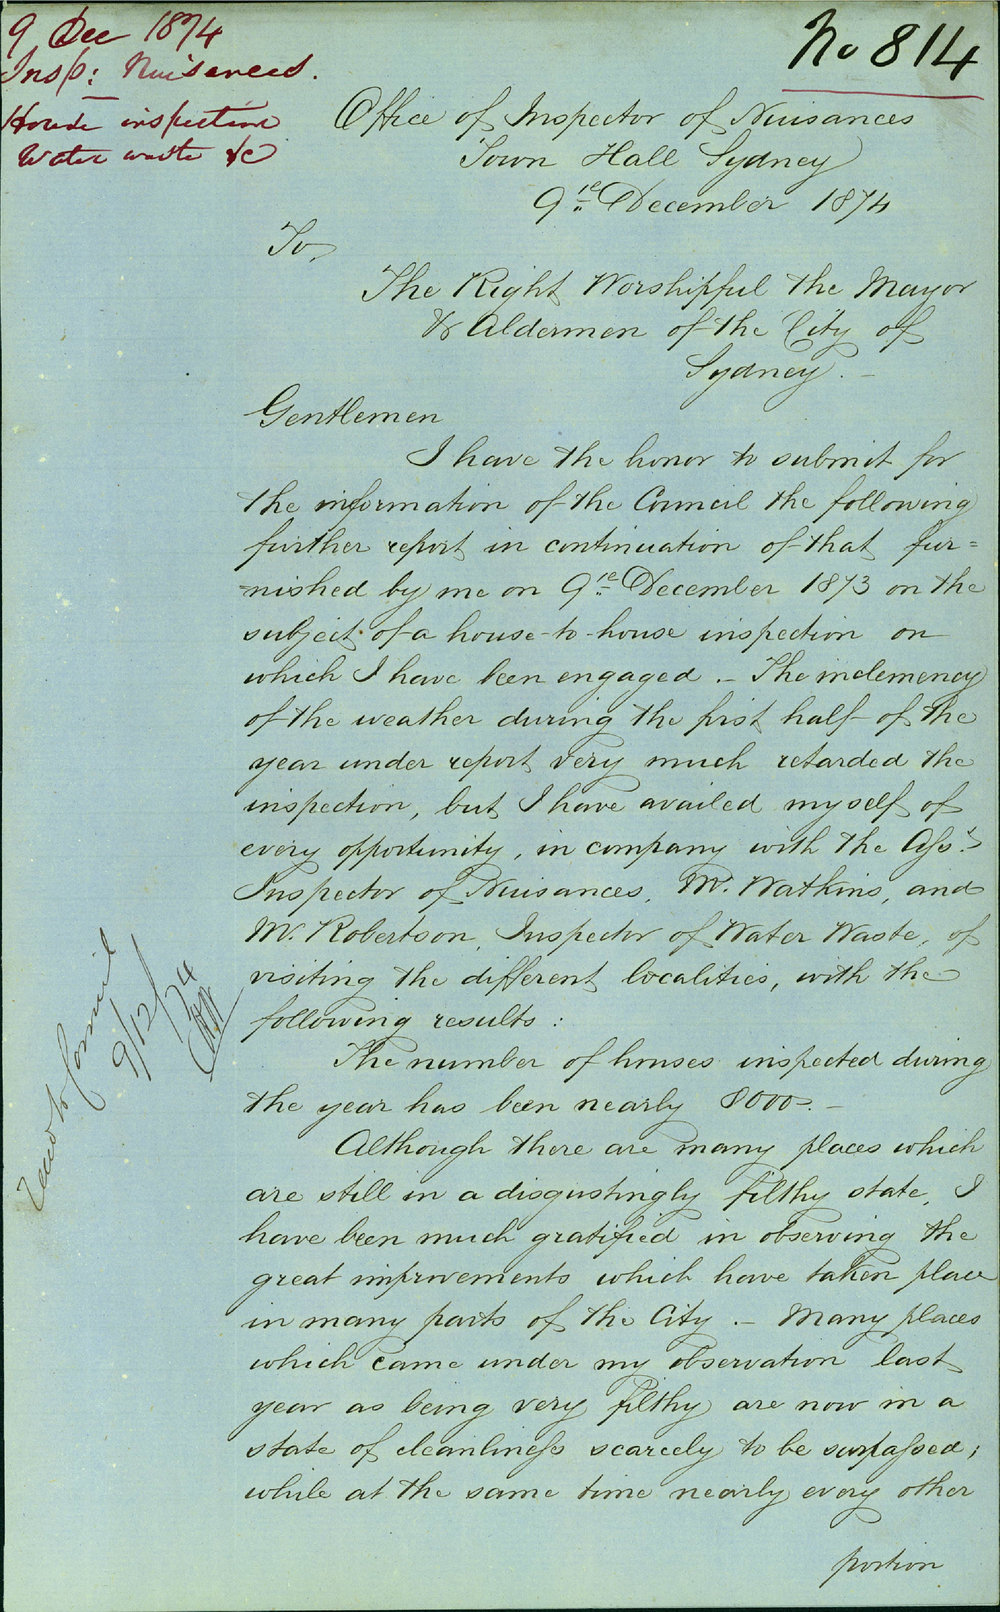 9 Dec 1874
Insp: Nuisances.
House inspection
Water waste &c
No 814
Office of Inspector of Nuisances
Town Hall Sydney
9th December 1874
To,
The Right Worshipful the Mayor
& Aldermen of the City of
Sydney. -
Gentlemen
I have the honor to submit for
the information of the Council the following
further report in continuation of that fur=
=nished by me on 9th December 1873 on the
subject of a house-to-house inspection on
which I have been engaged. - The inclemency
of the weather during the first half of the
year under report very much retarded the
inspection, but I have availed myself of
every opportunity, in company with the Asst.
Inspector of Nuisances, Mr. Watkins, and
Mr. Robertson, Inspector of Water Waste, of
visiting the different localities, with the
following results:
The number of houses inspected during
the year has been nearly 8000. -
Although there are many places which
are still in a disgustingly filthy state, I
have been much gratified in observing the
great improvements which have taken place
in many parts of the City. - Many places
which came under my observation last
year as being very filthy are now in a
state of cleanliness scarcely to be surpassed;
while at the same time nearly every other
portion
to Council
9/12/74